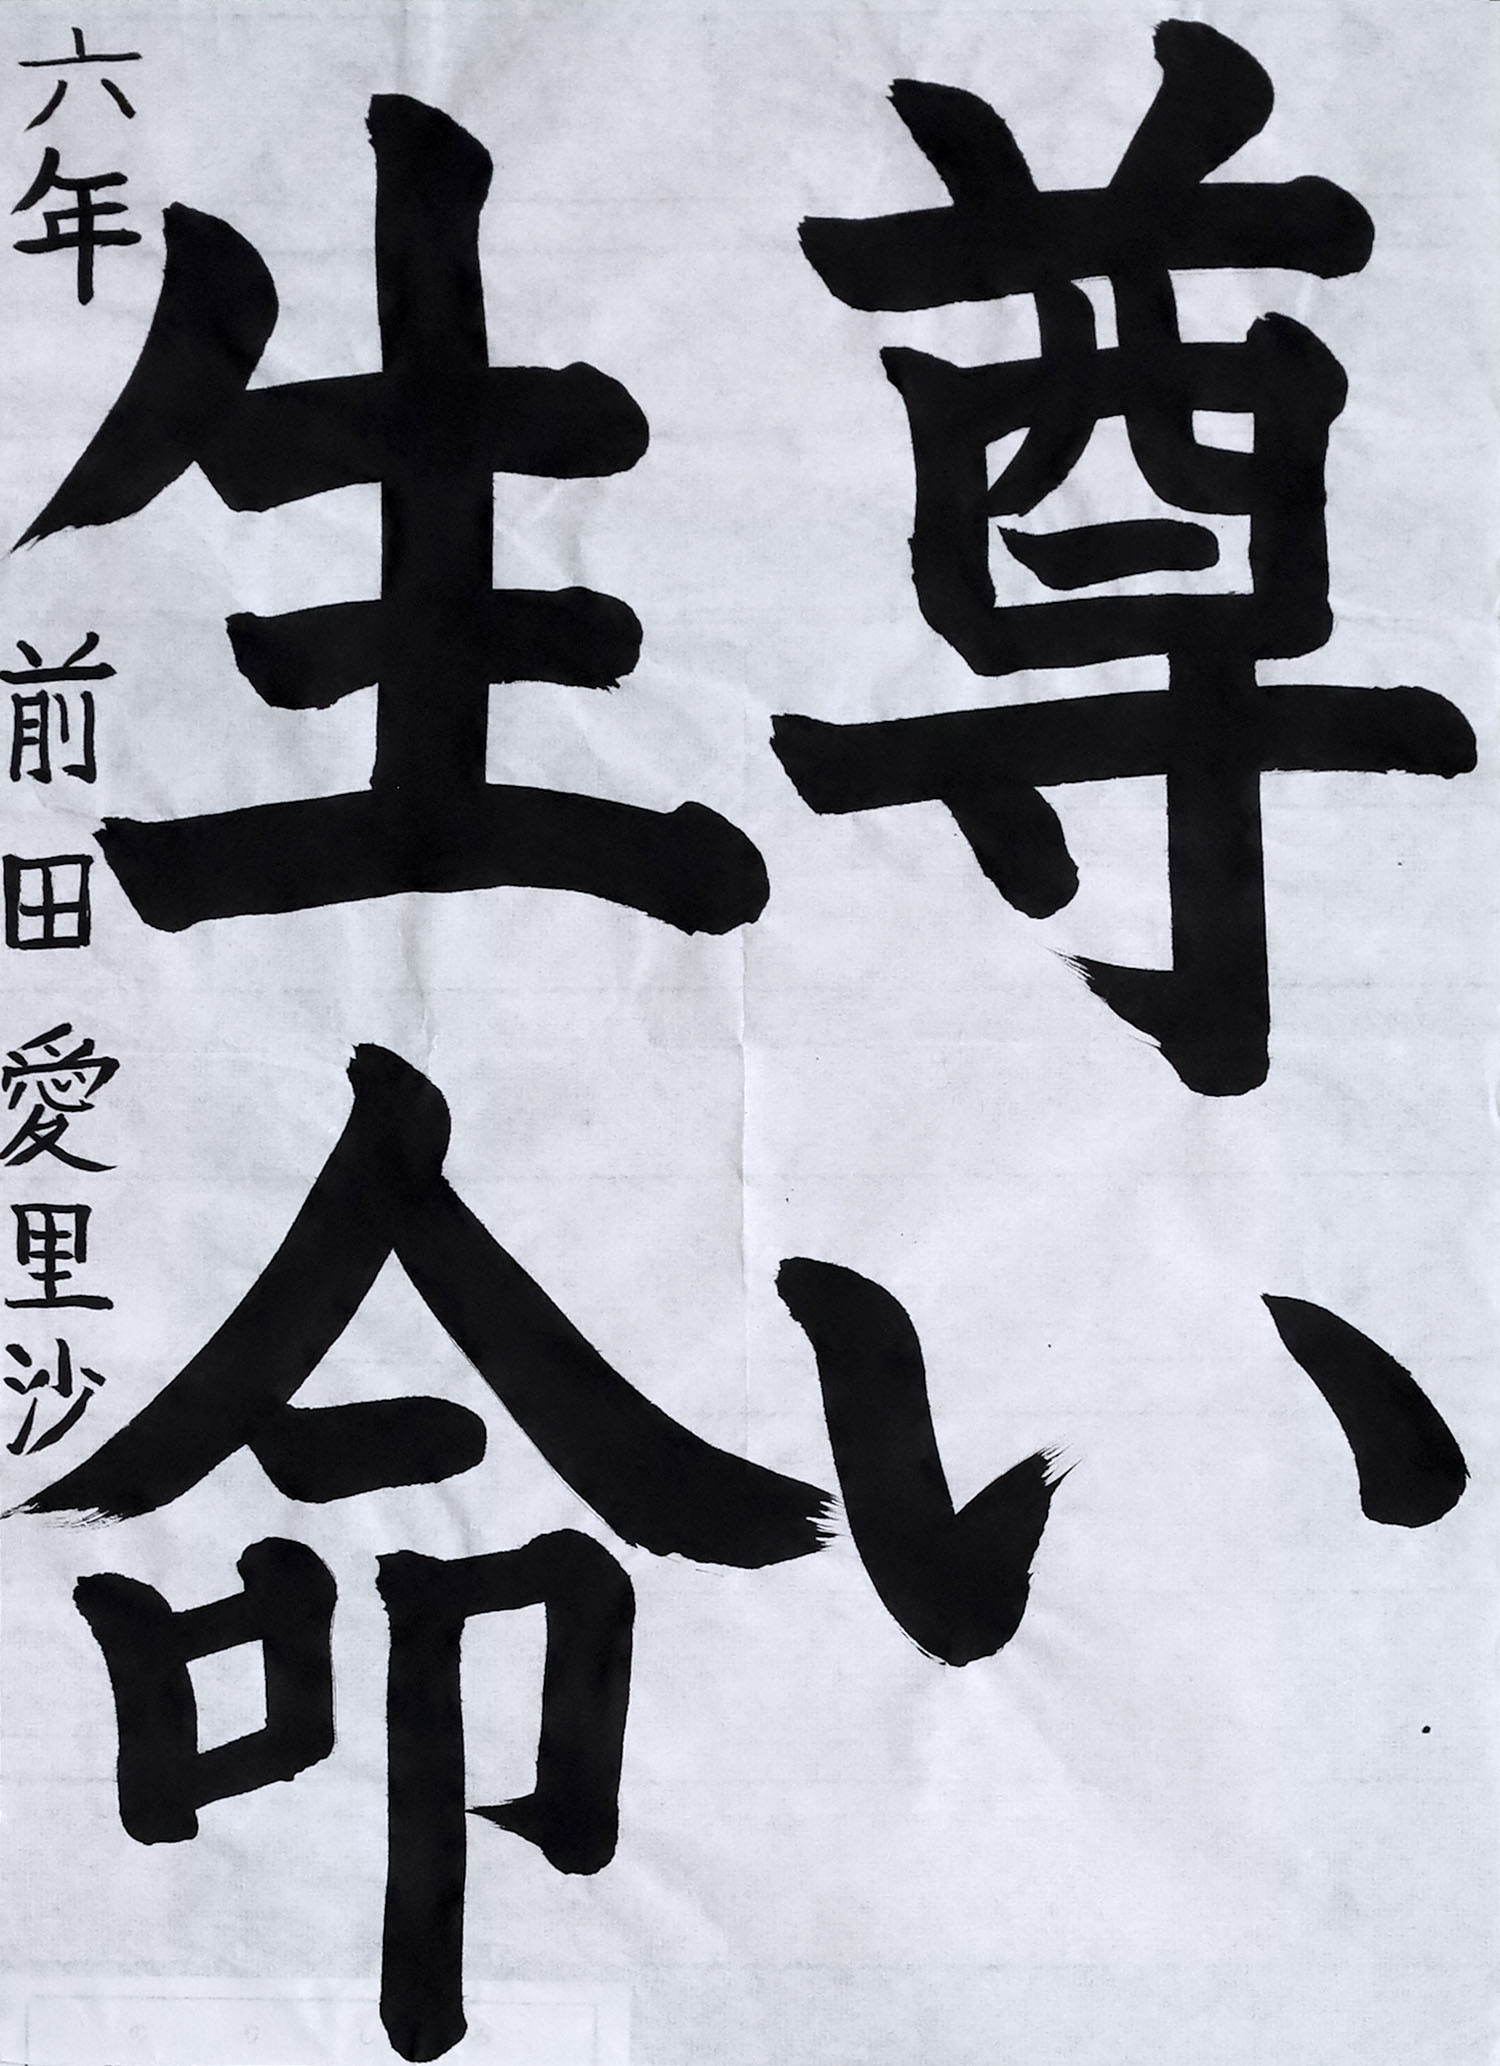 尊い
生命
六年 前田愛里沙